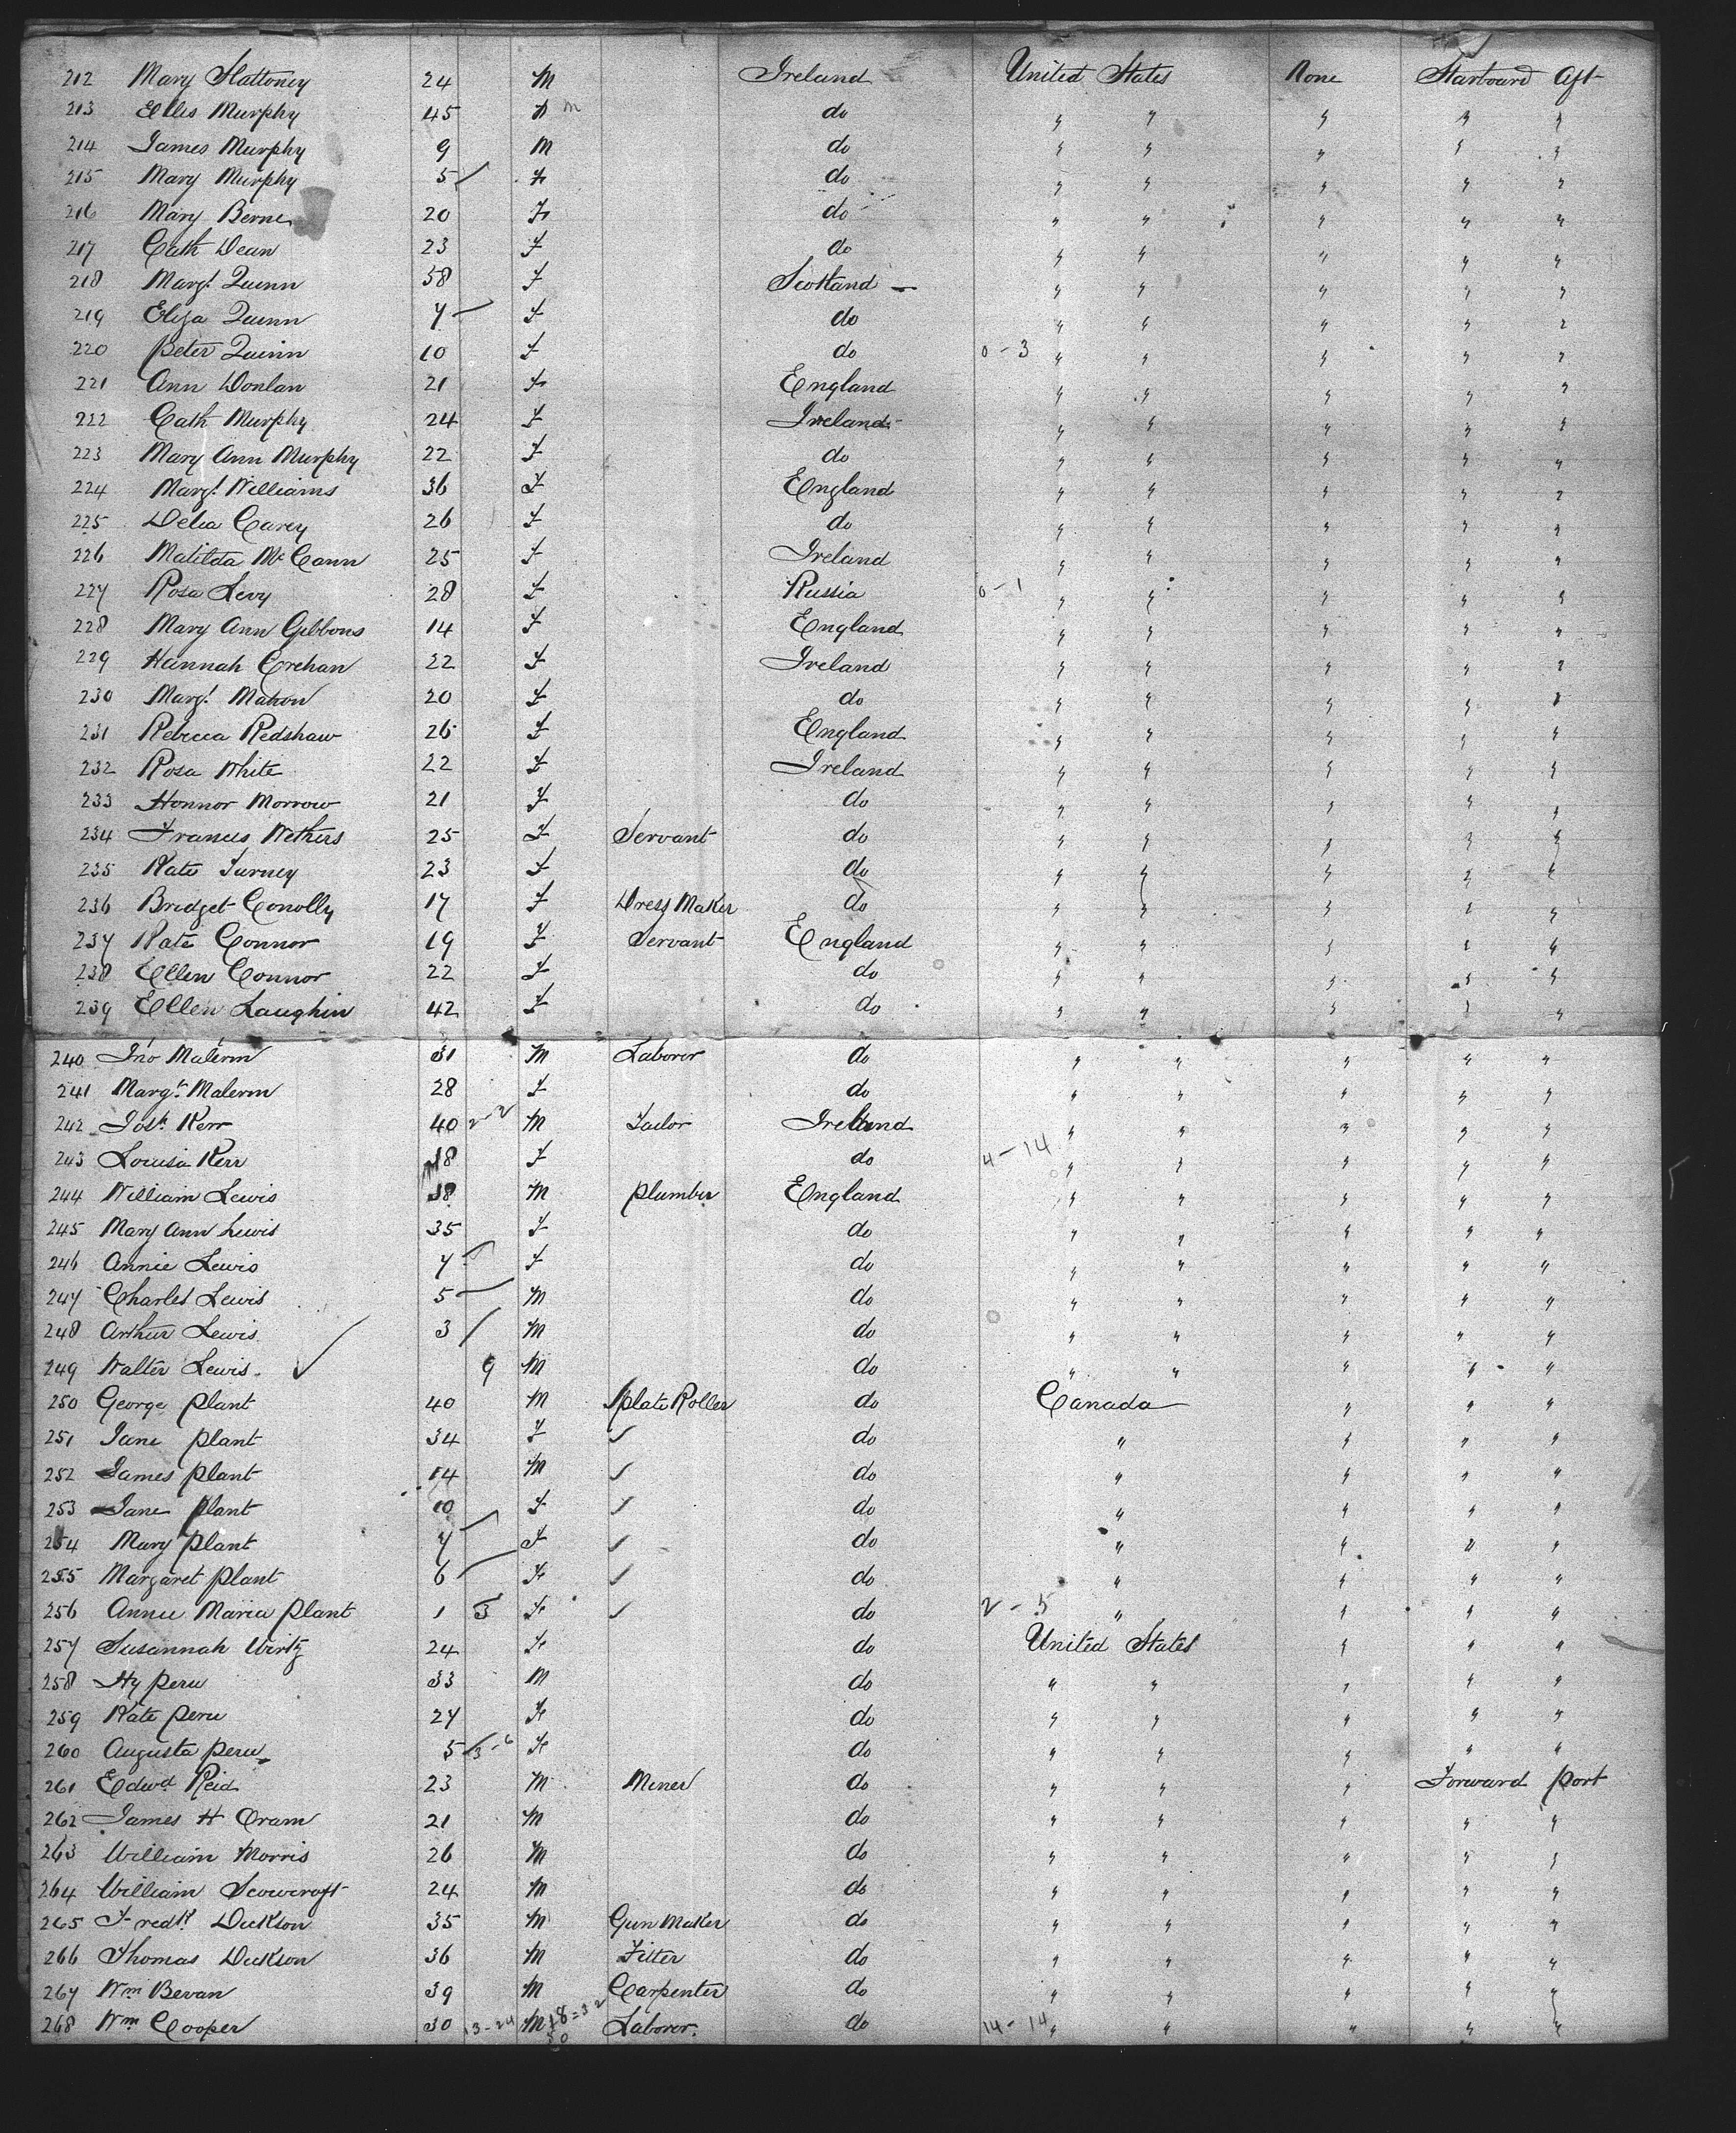 212 Mary Slattoney 24 M Ireland United States None Starboard Aft
213 Ellis Murphy 45 M do " " " " "
214 James Murphy 9 M do " " " " "
215 Mary Murphy 5 F do " " " " "
216 Mary Berne 20 F do " " " " "
217 Cath Dean 23 F do " " " " "
218 Margt Quinn 38 F Scotland " " " " "
219 Eliza Quinn 7 F do " " " " "
220 Peter Quinn 10 F do 0-3 " " " " "
221 Ann Donlan 21 F England " " " " "
222 Cath Murphy 24 F Ireland " " " " "
223 Mary Ann Murphy 22 F do " " " " "
224 Margt Williams 36 F England " " " " "
225 Delia Carey 26 F do " " " " "
226 Matilda McCann 25 F Ireland " " " " "
227 Rosa Levy 28 F Russia 0-1 " " " " "
228 Mary Ann Gibbons 14 F England " " " " "
229 Hannah Crehan 22 F Ireland " " " " "
230 Margt Mahon 20 F do " " " " "
231 Rebecca Redshaw 26 F England " " " " "
232 Rosa White 22 F Ireland " " " " "
233 Honnor Morrow 21 F do " " " " "
234 Frances Wethers 25 F Servant do " " " " "
235 Kate Turney 23 F do " " " " "
236 Bridget Conolly 17 F Dress Maker do " " " " "
237 Kate Connor 19 F Servant England " " " " "
238 Ellen Connor 22 F do " " " " "
239 Ellen Laughin 42 F do " " " " "
240 Jno Malerm 31 M Laborer do " " " " "
241 Margt Malerm 28 F do " " " " "
242 Josh Kerr 40 2-2 M Tailor Ireland " " " " "
243 Louisa Kerr 18 F do 4-14 " " " " "
244 William Lewis 38 M Plumber England " " " " "
245 Mary Ann Lewis 35 F do " " " " "
246 Annie Lewis 7 F do " " " " "
247 Charles Lewis 5 M do " " " " "
248 Arthur Lewis 3 M do " " " " "
249 Walter Lewis 9 M do " " " " "
250 George Plant 40 M Plate Roller do Canada " " "
251 Jane Plant 34 F do " " " "
252 James Plant 14 M do " " " "
253 Jane Plant 10 F do " " " "
254 Mary Plant 7 F do " " " "
255 Margaret Plant 6 F do " " " "
256 Annie Maria Plant 1 3 F do 2-5 " " " "
257 Susannah Wirtz 24 F do United States " " "
258 Hy Peru 33 M do " " " " "
259 Kate Peru 27 F do " " " " "
260 Augusta Peru 5 3-6 F do " " " " "
261 Edwd Reid 23 M Miner do " " " Forward Port
262 James H Oram 21 M do " " " " "
263 William Morris 26 M do " " " " "
264 William Scowcroft 24 M do " " " " "
265 Fredk Dickson 35 M Gun Maker do " " " " "
266 Thomas Dickson 36 M Fitter do " " " " "
267 Wm Bevan 39 M Carpenter do " " " " "
268 Wm Cooper 30 13-24 M 18=32 Laborer do 14-14 " " " " "